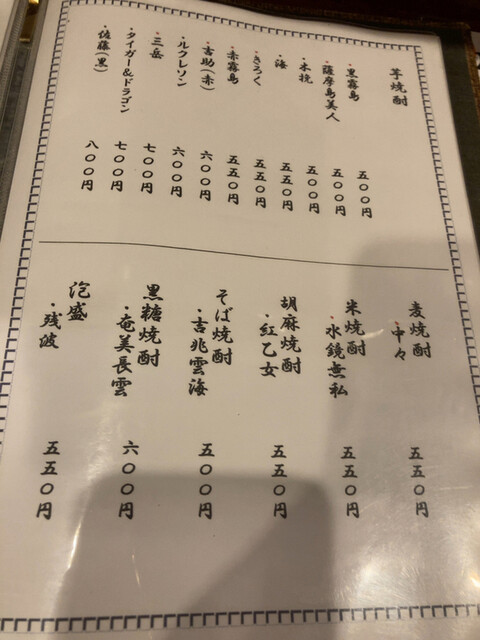 芋焼酎
・黒霧島 五〇〇円
・薩摩島美人 五〇〇円
・木挽 五〇〇円
・海 五五〇円
・きろく 五五〇円
・赤霧島 五五〇円
・吉助（赤） 六〇〇円
・ルクレソン 六〇〇円
・三岳 七〇〇円
・タイガー＆ドラゴン 七〇〇円
・佐藤（黒） 八〇〇円
麦焼酎
・中々 五五〇円
米焼酎
・水鏡無私 五五〇円
胡麻焼酎
・紅乙女 五五〇円
そば焼酎
・吉兆雲海 五〇〇円
黒糖焼酎
・奄美長雲 六〇〇円
泡盛
・残波 五五〇円